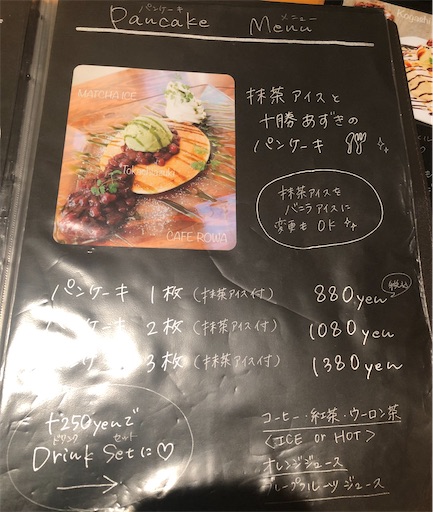 パンケーキ メニュー
Pancake Menu
MATCHA ICE
CAFE ROWA
抹茶アイスと
十勝あずきの
パンケーキ
抹茶アイスを
バニラアイスに
変更も OK
パンケーキ 1枚 (抹茶アイス付) 880yen 税込
ケーキ 2枚 (抹茶アイス付) 1080yen
ーキ 3枚 (抹茶アイス付) 1380yen
+250yenで
ドリンク セット
Drink Setに♡
コーヒー・紅茶・ウーロン茶
<ICE or HOT>
オレンジジュース
グレープフルーツジュース